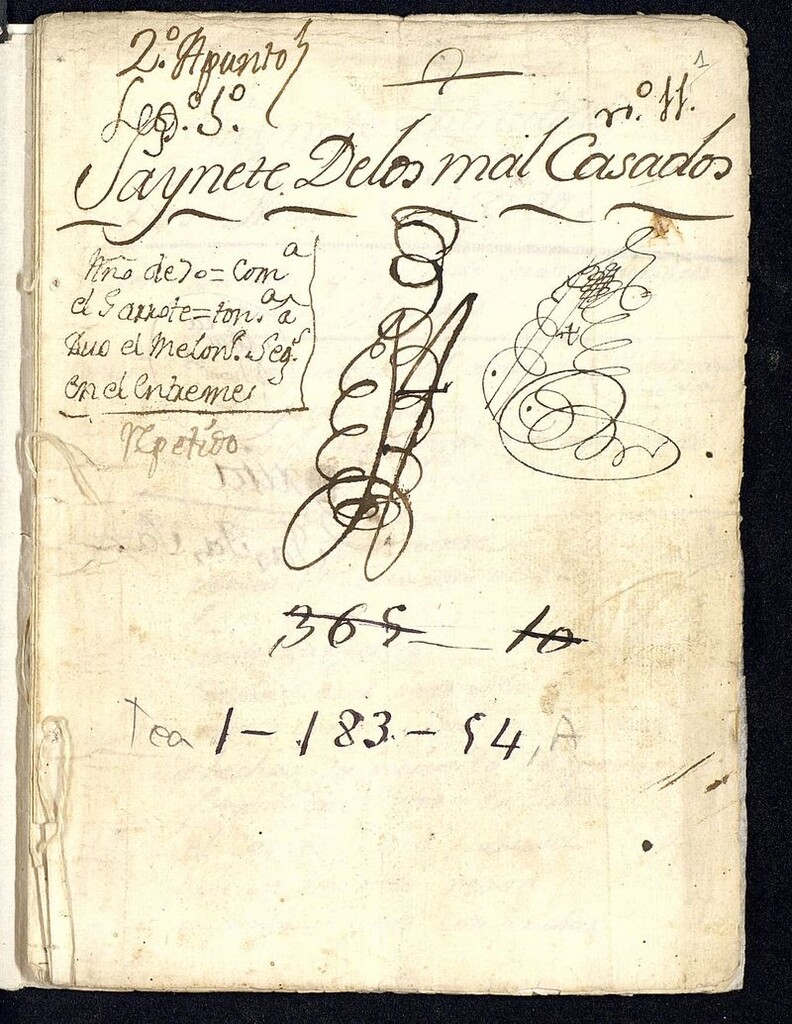 2.º Apunto
1
Leg.º 5.º
n.º 11.
Saynete. De los mal Casados
Año de 70 = Com.ª
el Garrote = ton.ª a
Duo el Melon.º Seg.º
en el Entremes
Rpetido.
365 — 10
Tea 1 - 183 - 54, A